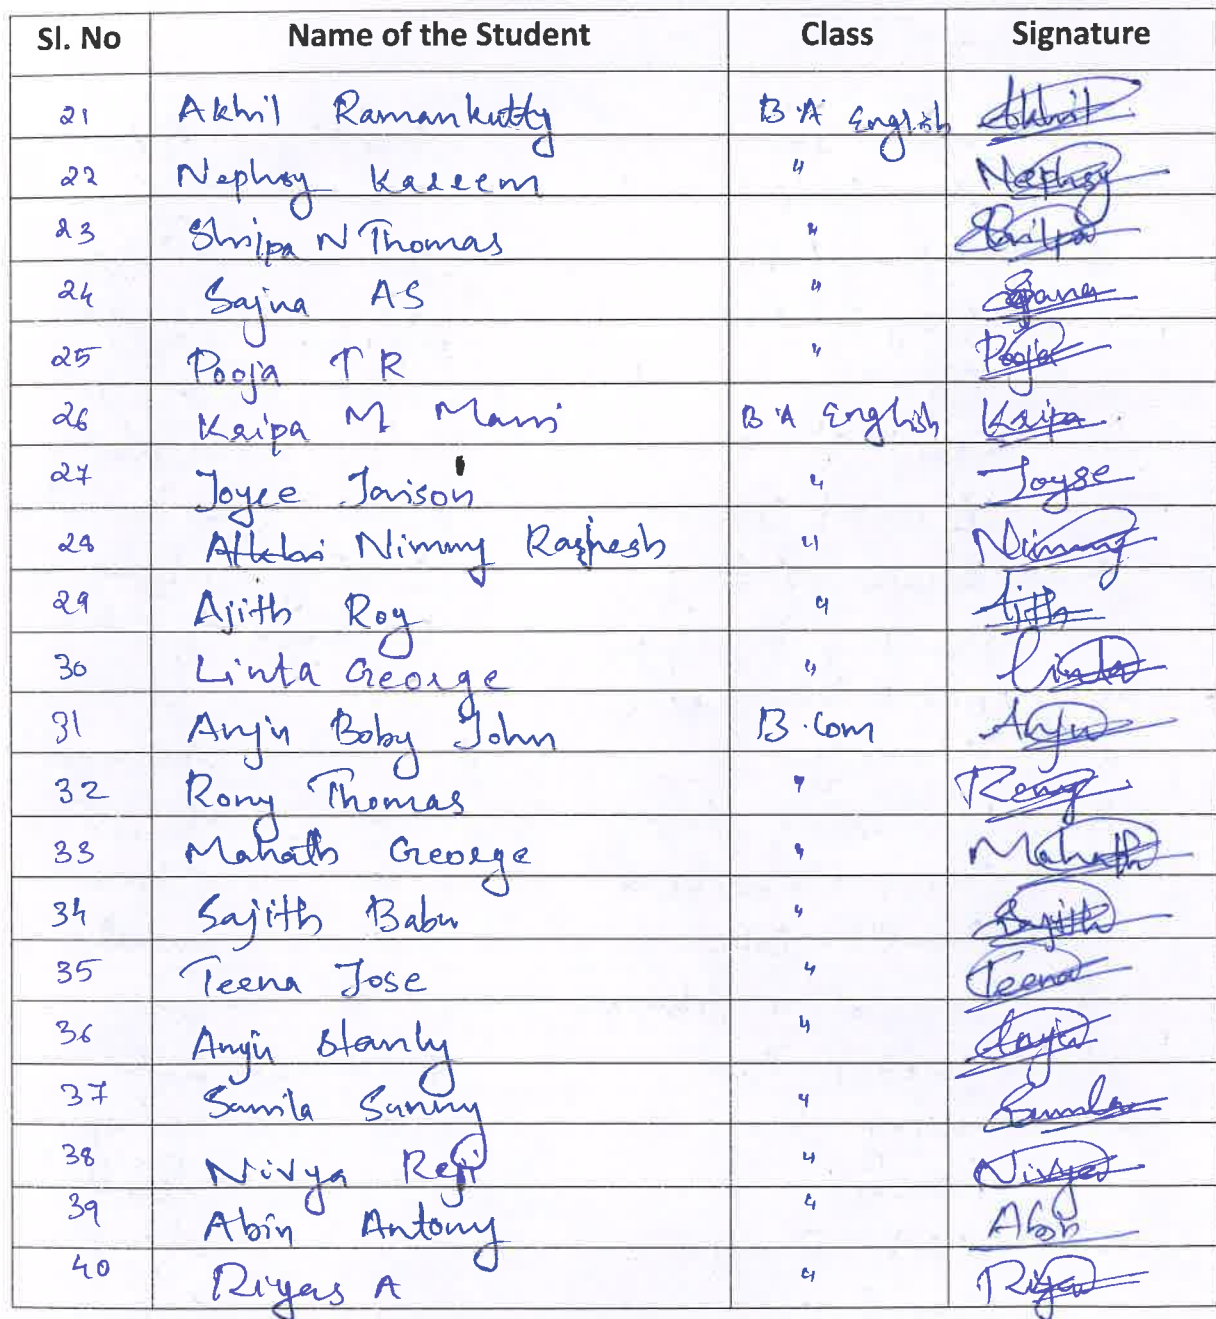 Sl. No Name of the Student Class Signature
21 Akhil Ramankutty B.A English Akhil
22 Nephsy Kaseem " Nephsy
23 Shilpa N Thomas " Shilpa
24 Sajna AS " Sajana
25 Pooja T R " Pooja
26 Kripa M Mani B.A English Kripa
27 Joyce Janison " Joyse
28 Nimmy Rajhesh " Nimmy
29 Ajith Roy " Ajith
30 Linta George " Linta
31 Anju Boby John B.Com Anju
32 Rony Thomas " Rony
33 Mahath George " Mahath
34 Sajith Babu " Sajith
35 Teena Jose " Teena
36 Anju Stanly " Anju
37 Samila Sunny " Samila
38 Nivya Reji " Nivya
39 Abin Antony " Abin
40 Riyas A " Riyas